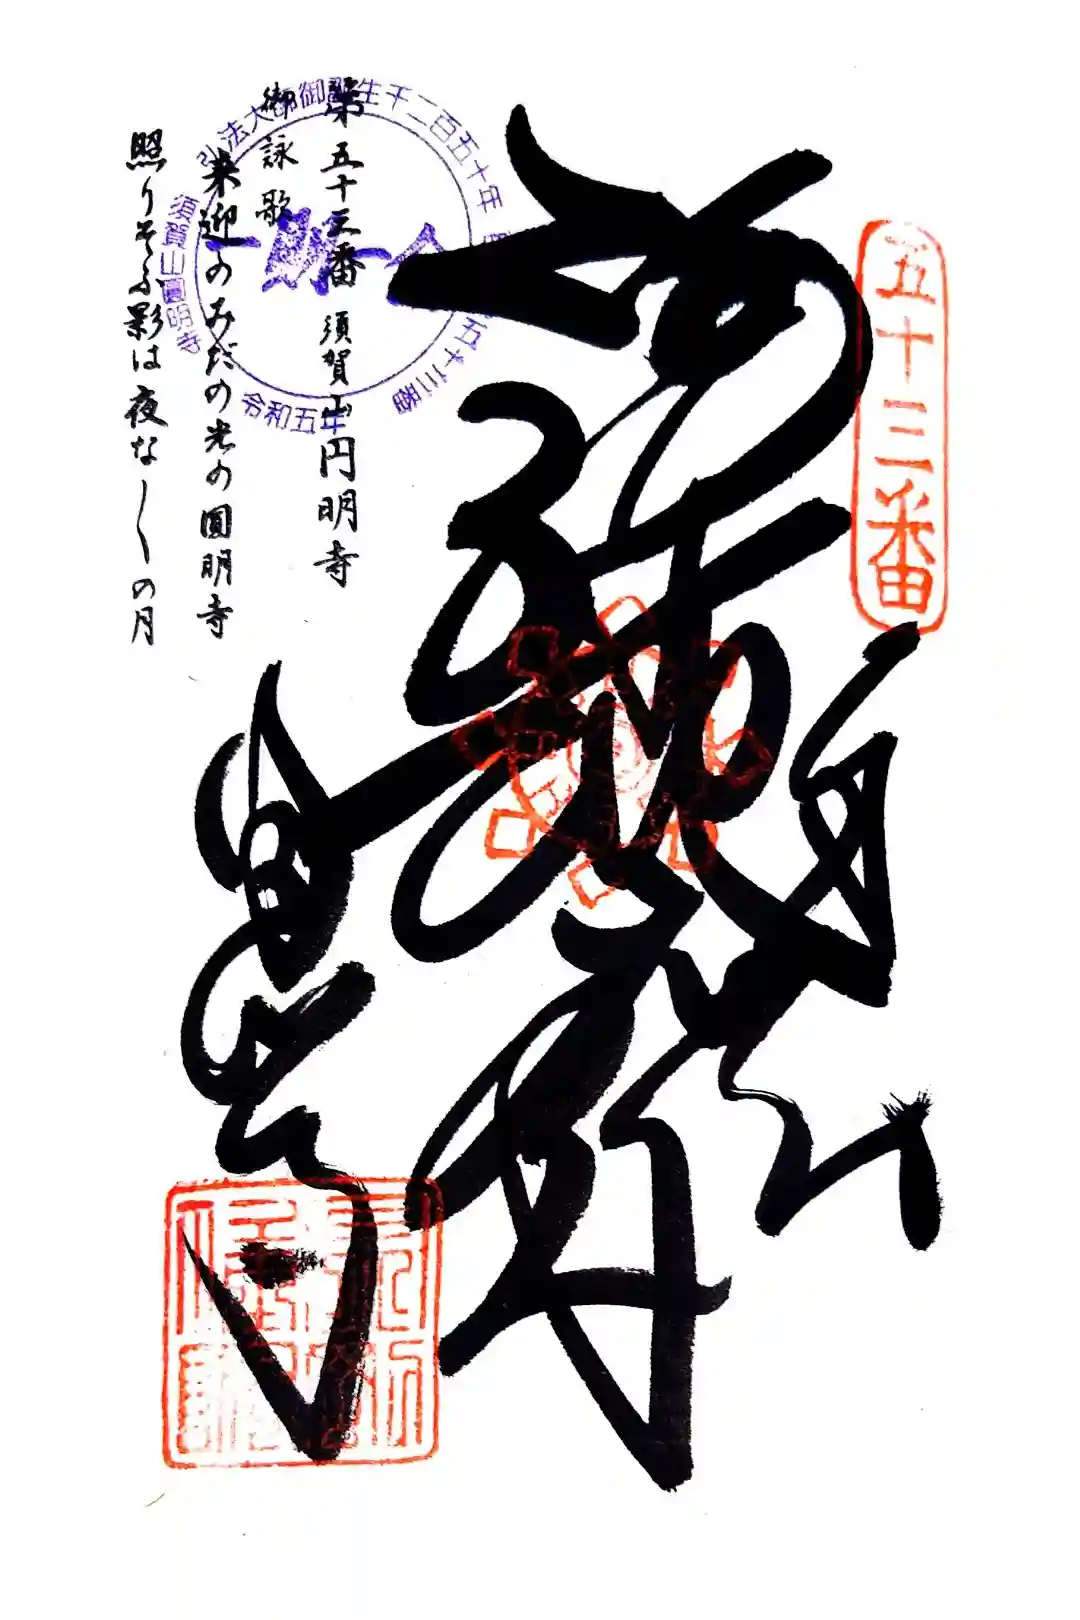 五十三番
奉納
阿弥陀如来
圓明寺
第五十三番 須賀山円明寺
御詠歌
来迎のみだの光の圓明寺
照りそふ影は夜な〱の月
弘法大師御誕生千二百五十年
五十三番
令和五年
須賀山圓明寺